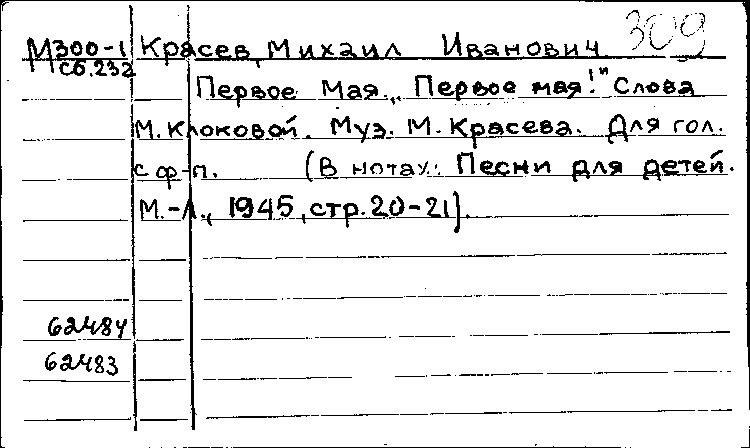 М300-1 Красев, Михаил Иванович 309
Сб.232
Первое Мая. „Первое мая!" Слова
М. Клоковой. Муз. М. Красева. Для гол.
с ф-п. (В нотах: Песни для детей.
М.-Л., 1945, стр. 20-21).
62484
62483